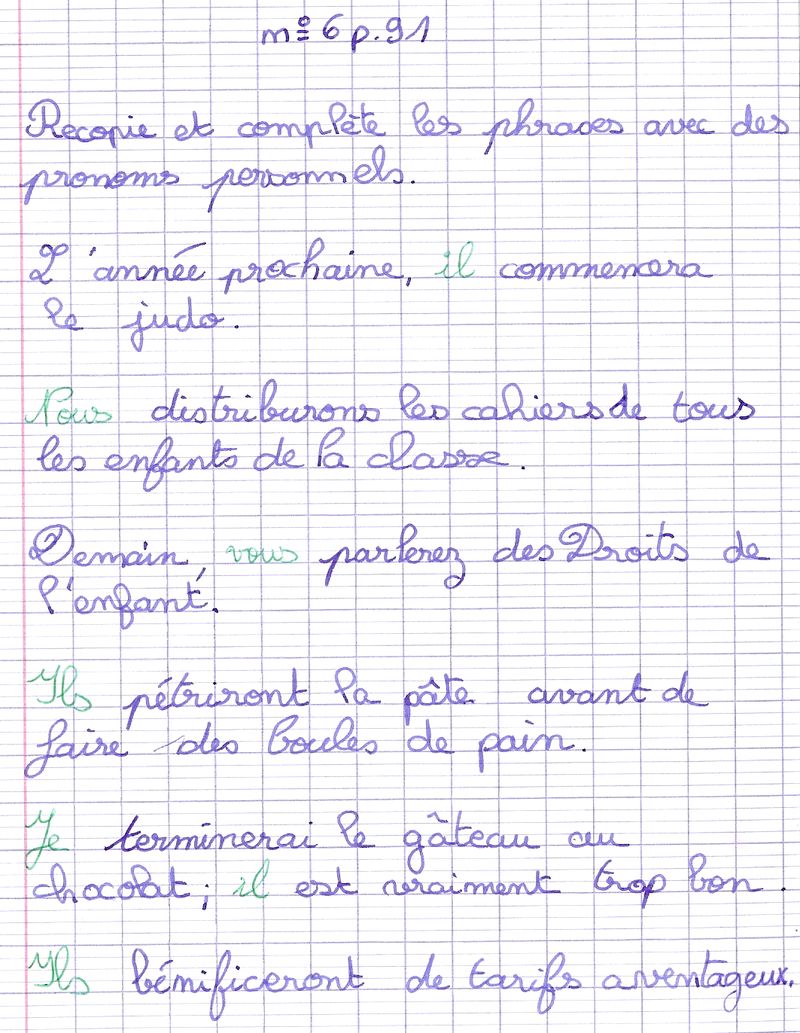 n° 6 p. 91
Recopie et complète les phrases avec des
pronoms personnels.
L'année prochaine, il commencera
le judo.
Nous distriburons les cahiers de tous
les enfants de la classe.
Demain, vous parlerez des Droits de
l'enfant.
Ils pétriront la pâte avant de
faire des boules de pain.
Je terminerai le gâteau au
chocolat; il est vraiment trop bon.
Ils bénificeront de tarifs aventageux.